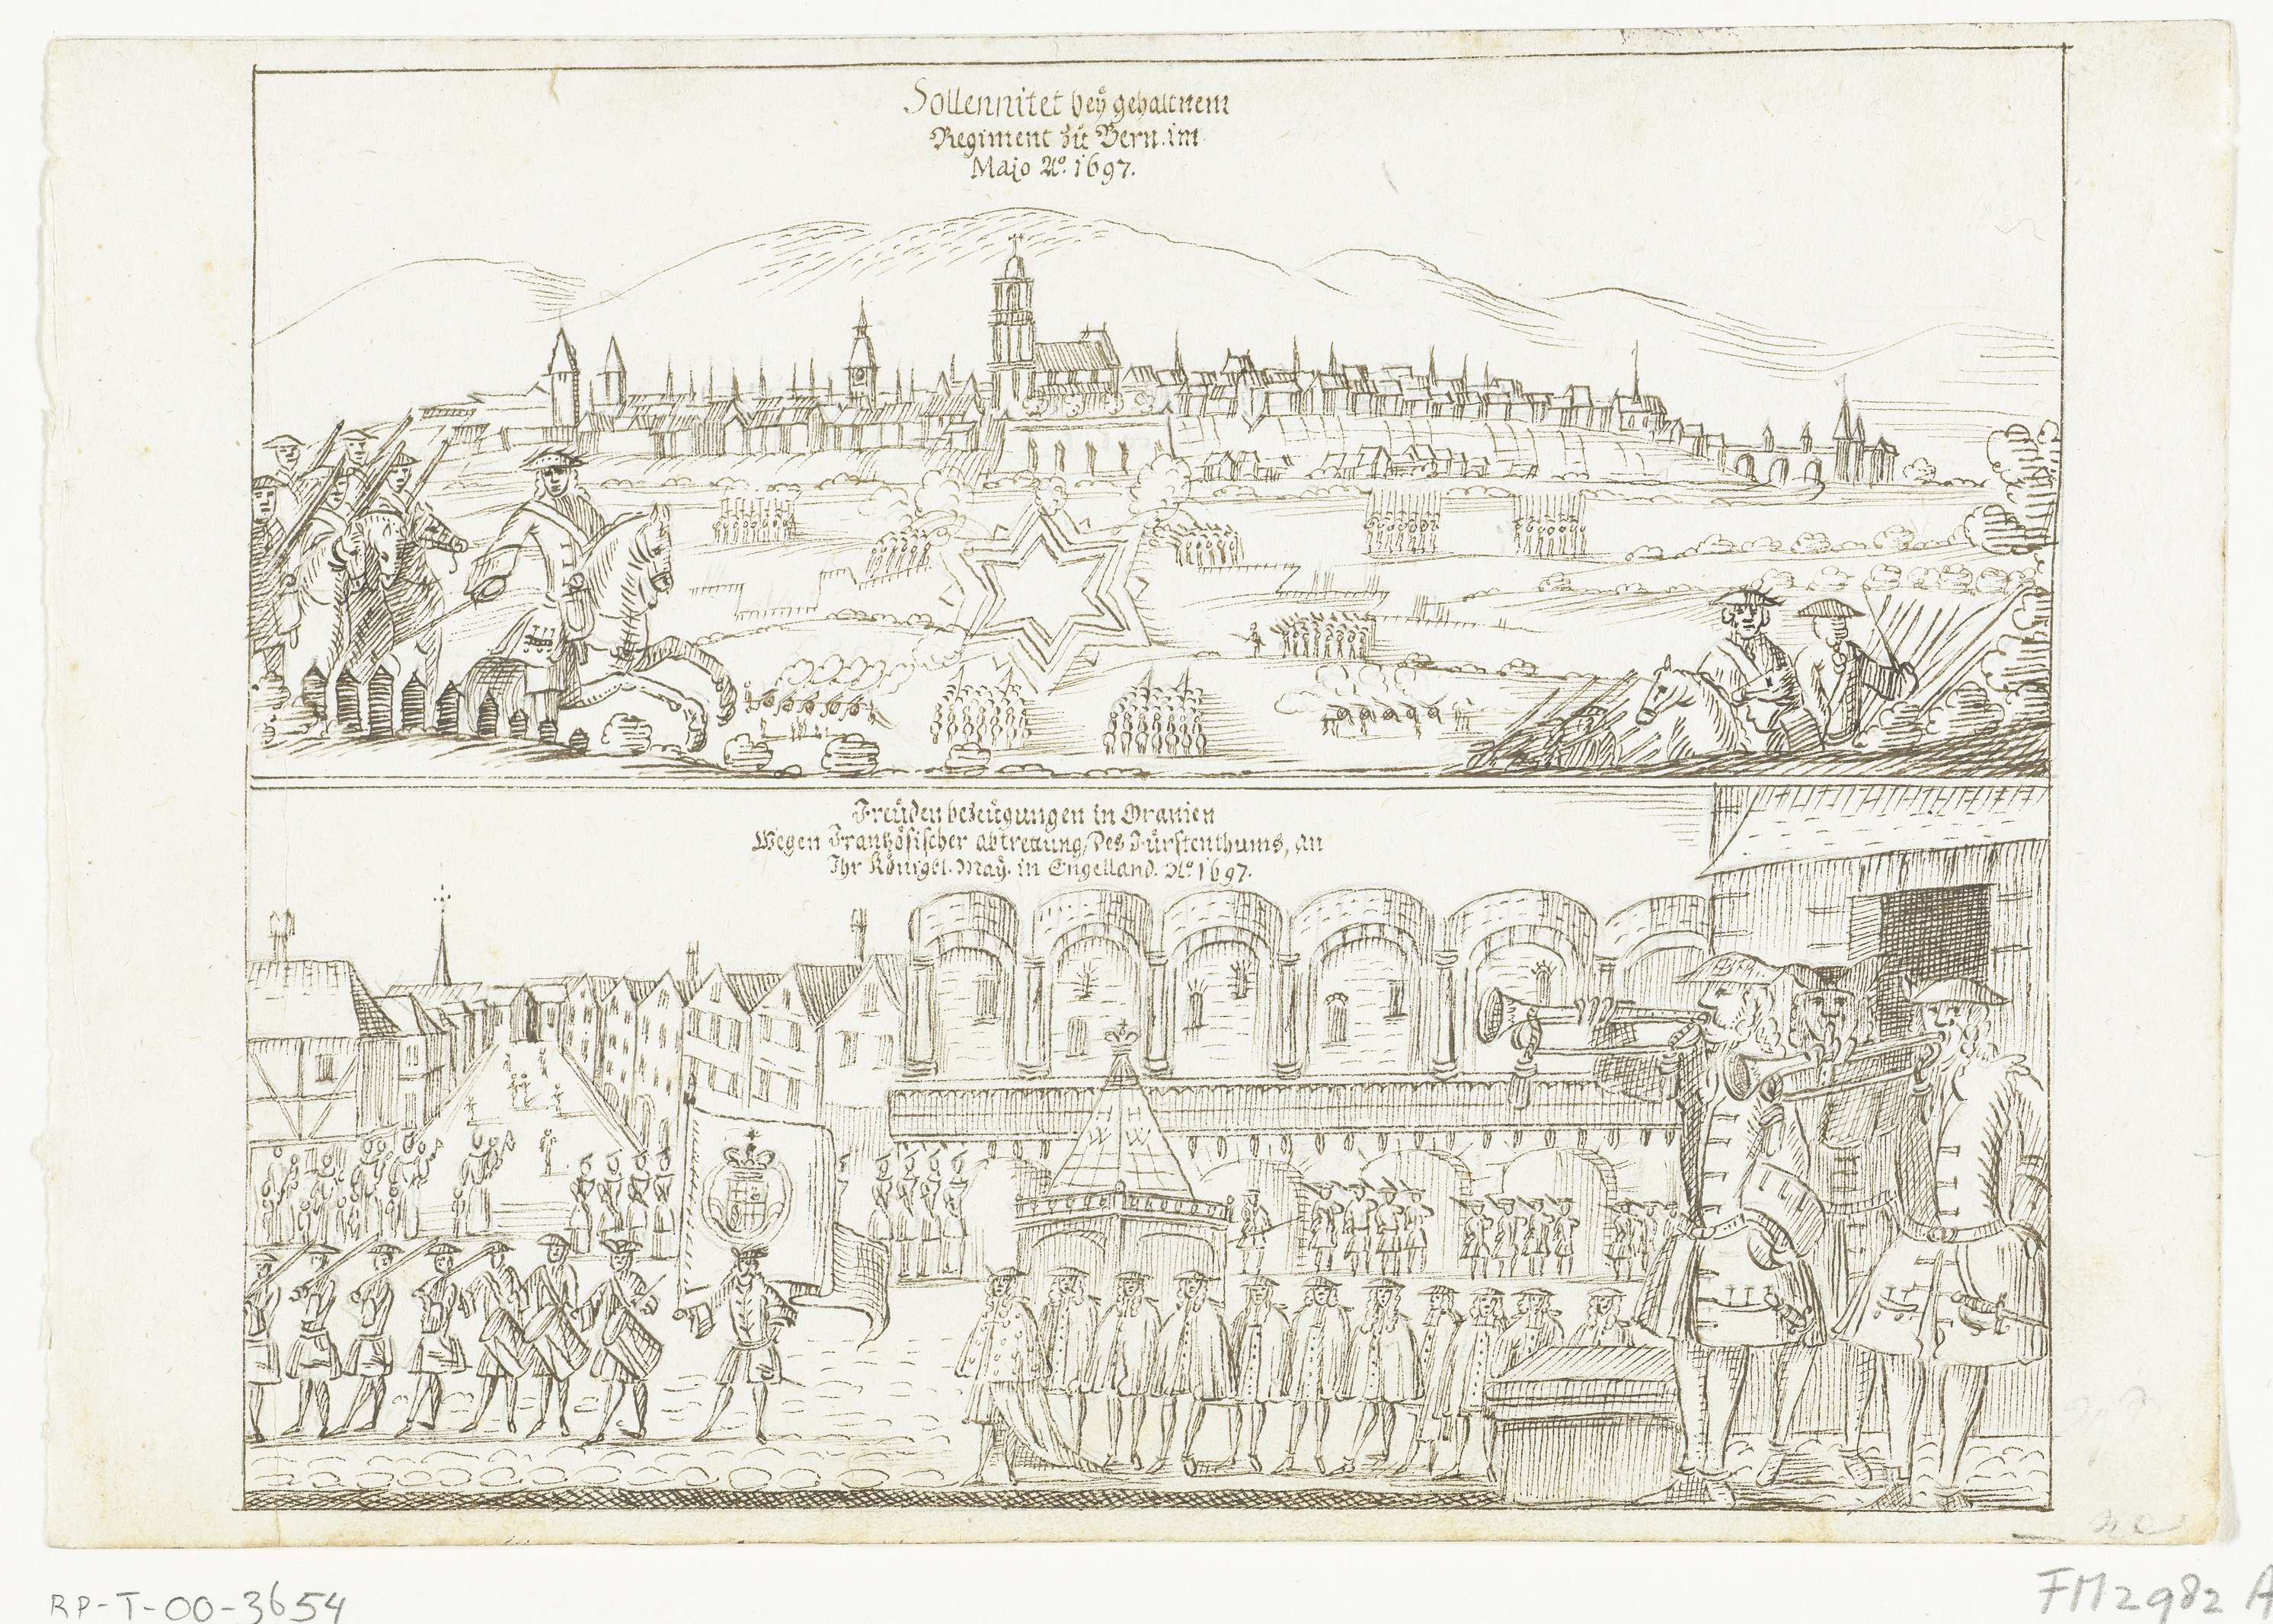 Sollennitet beÿ gehaltnem
Regiment zu Bern. im
Majo Aº. 1697.
Freüden bezeügungen in Oranien
Wegen Frantzösischer abtrettung, des Fürstenthums, an
Ihr Königl. Maÿ. in Engelland. Aº. 1697.
W W
RP-T-00-3654
FM2982 A